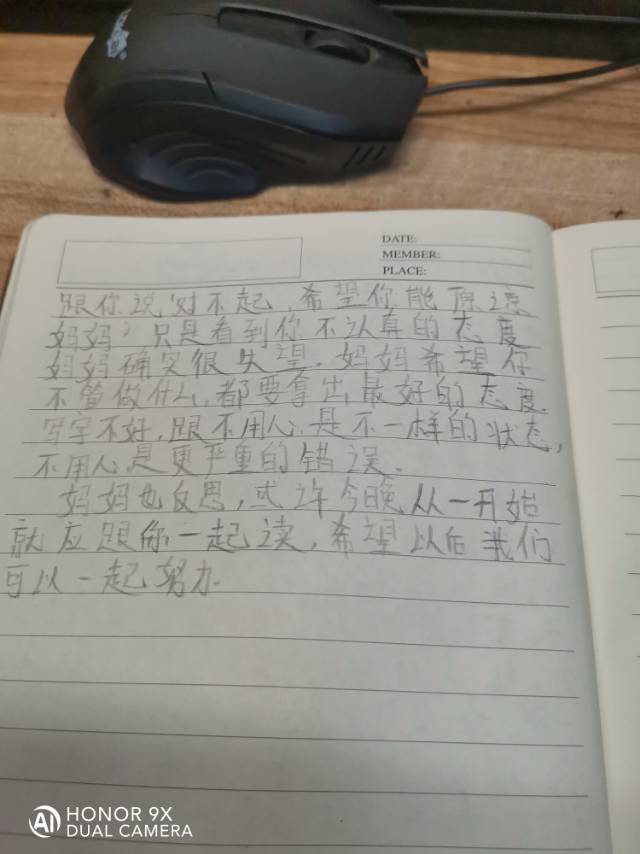 DATE:
MEMBER:
PLACE:
跟你说“对不起，希望你能原谅
妈妈”只是看到你不认真的态度
妈妈确实很失望．妈妈希望你
不管做什么，都要拿出最好的态度．
写字不好，跟不用心，是不一样的状态，
不用心是更严重的错误．
妈妈也反思，或许今晚从一开始
就应跟你一起读，希望以后我们
可以一起努力．
AI HONOR 9X
DUAL CAMERA